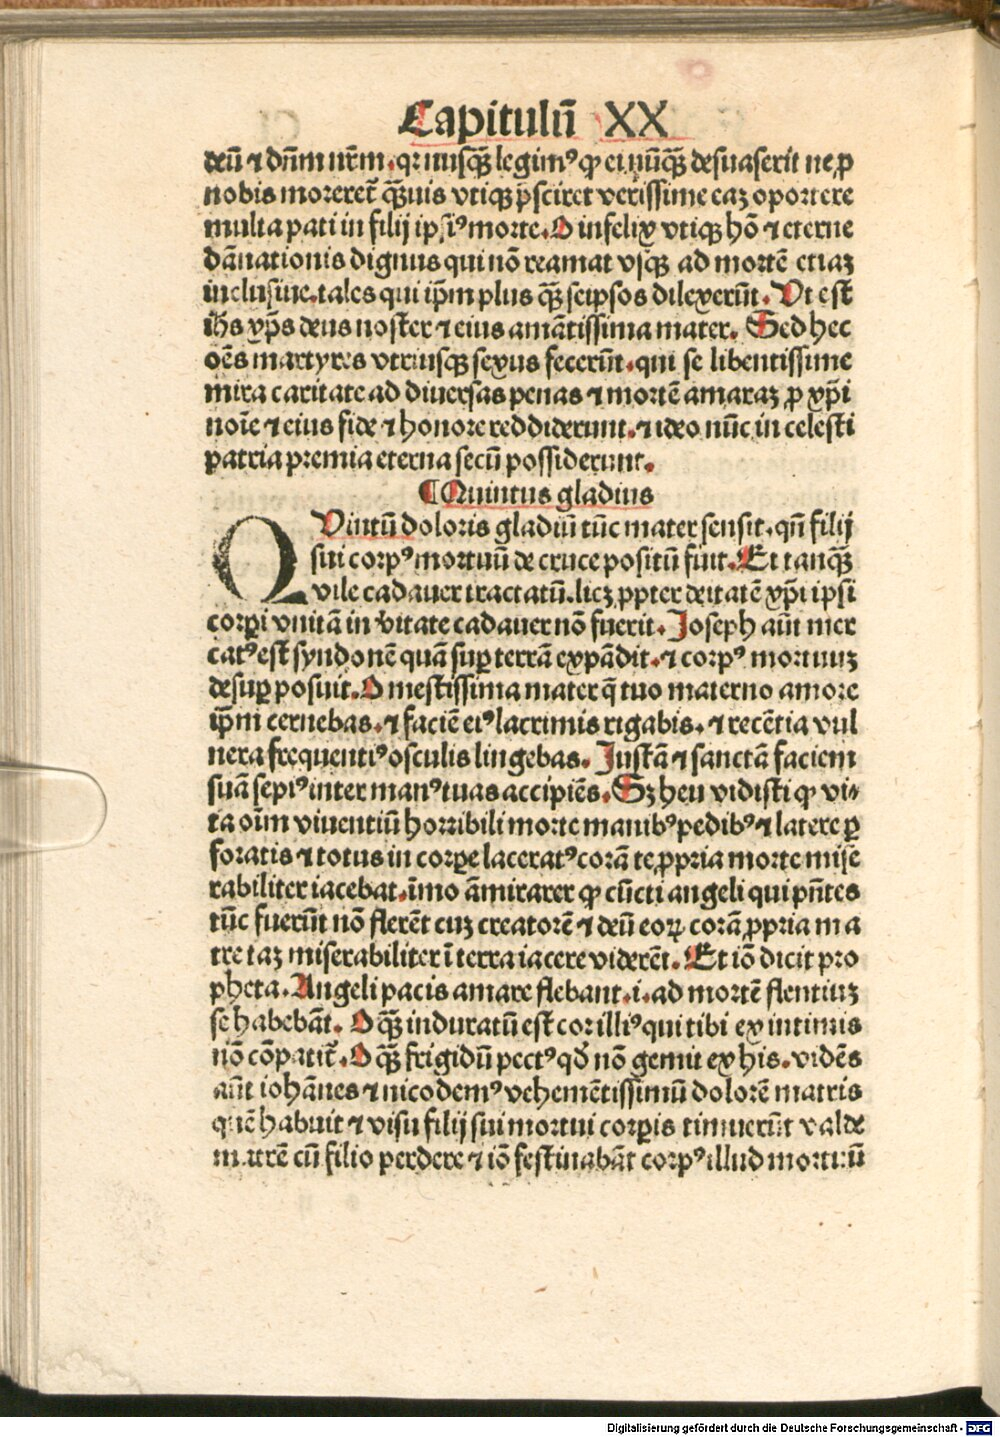 Capitulū XX
deū ⁊ dn̄m nr̄m. qꝛ nusꝙ̄ legimꝰ ꝙ ei nūꝙ̄ desuaserit ne ꝓ
nobis moreret̄ ꝙ̄uis vtiqꝫ p̄sciret verissime eaꝫ oportere
multa pati in filij ipsiꝰ morte. O infelix vtiqꝫ hō ⁊ eterne
dānationis dignus qui nō reamat vsqꝫ ad mortē etiaꝫ
inclusiue. tales qui ip̄m plus ꝙ̄ seipsos dilexerūt. Vt est
ih̄s xp̄s deus noster ⁊ eius amātissima mater. Sed hec
oēs martyres vtriusqꝫ sexus fecerūt. qui se libentissime
mira caritate ad diuersas penas ⁊ mortē amaraꝫ ꝓ xp̄i
noīe ⁊ eius fide ⁊ honore reddiderunt. ⁊ ideo nūc in celesti
patria premia eterna secū possiderunt.
¶ Quintus gladius
QVintū doloris gladiū tūc mater sensit. qn̄ filij
sui corpꝰ mortuū de cruce positū fuit. Et tanꝙ̄
vile cadauer tractatū. licꝫ ꝓpter deitatē xp̄i ipsi
corꝑi vnitā in v̄itate cadauer nō fuerit. Joseph aūt mer
catꝰ est syndonē quā suꝑ terrā expādit. ⁊ corpꝰ mortuuꝫ
desuꝑ posuit. O mestissima mater q̄ tuo materno amore
ip̄m cernebas. ⁊ faciē eiꝰ lacrimis rigabis. ⁊ recētia vul
nera frequentiꝰ osculis lingebas. Justā ⁊ sanctā faciem
suā sepiꝰ inter manꝰ tuas accipiēs. Sꝫ heu vidisti ꝙ vi⸗
ta oīm viuentiū horribili morte manibꝰ pedibꝰ ⁊ latere ꝑ
foratis ⁊ totus in corꝑe laceratꝰ corā te ꝓpria morte mise
rabiliter iacebat. īmo āmirarer ꝙ cūcti angeli qui pn̄tes
tūc fuerūt nō flerēt cuꝫ creatorē ⁊ deū eoꝝ corā ꝓpria ma
tre taꝫ miserabiliter ī terra iacere viderēt. Et iō dicit pro
pheta. Angeli pacis amare flebant .i. ad mortē flentiuꝫ
se habebāt. O ꝙ̄ induratū est cor illiꝰ qui tibi ex intimis
nō cōpatit̄. O ꝙ̄ frigidū pectꝰ qd̄ nō gemit ex his. vidēs
aūt iohānes ⁊ nicodemꝰ vehemētissimū dolorē matris
quē habuit ⁊ visu filij sui mortui corꝑis timuerūt valde
matrē cū filio perdere ⁊ iō festinabāt corpꝰ illud mortuū
Digitalisierung gefördert durch die Deutsche Forschungsgemeinschaft - DFG